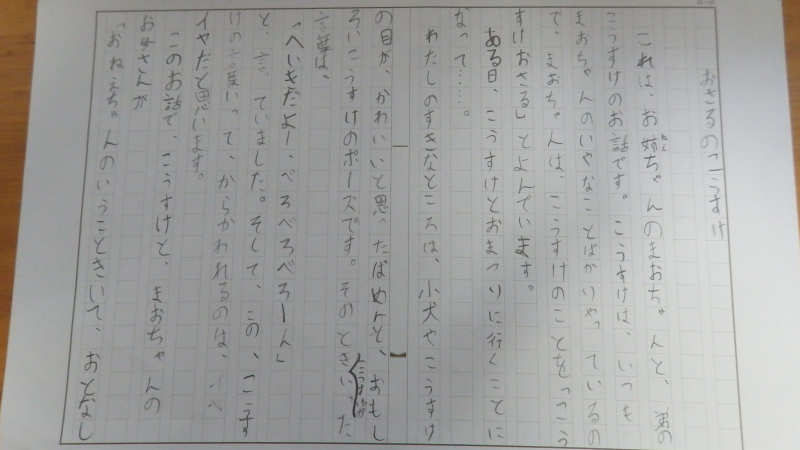 おさるのこうすけ
これは、お姉ちゃんのまおちゃんと、弟の
ねえ
こうすけのお話です。こうすけは、いつも
まおちゃんのいやなことばかりやっているの
で、まおちゃんは、こうすけのことを「こう
すけおさる」とよんでいます。
ある日、こうすけとおまつりに行くことに
なって……。
わたしのすきなところは、小犬やこうすけ
の目が、かわいいと思ったばめんと、おもし
ろいこうすけのポーズです。そのときいった
こうすけの
言葉は、
「へいきだよー、べろべろべろーん」
と、言っていました。そして、この、こうす
けの言葉って、からかわれるのは、
イヤだと思います。
このお話で、こうすけと、まおちゃんの
お母さんが
「おねえちゃんのいうこときいて、おとなし